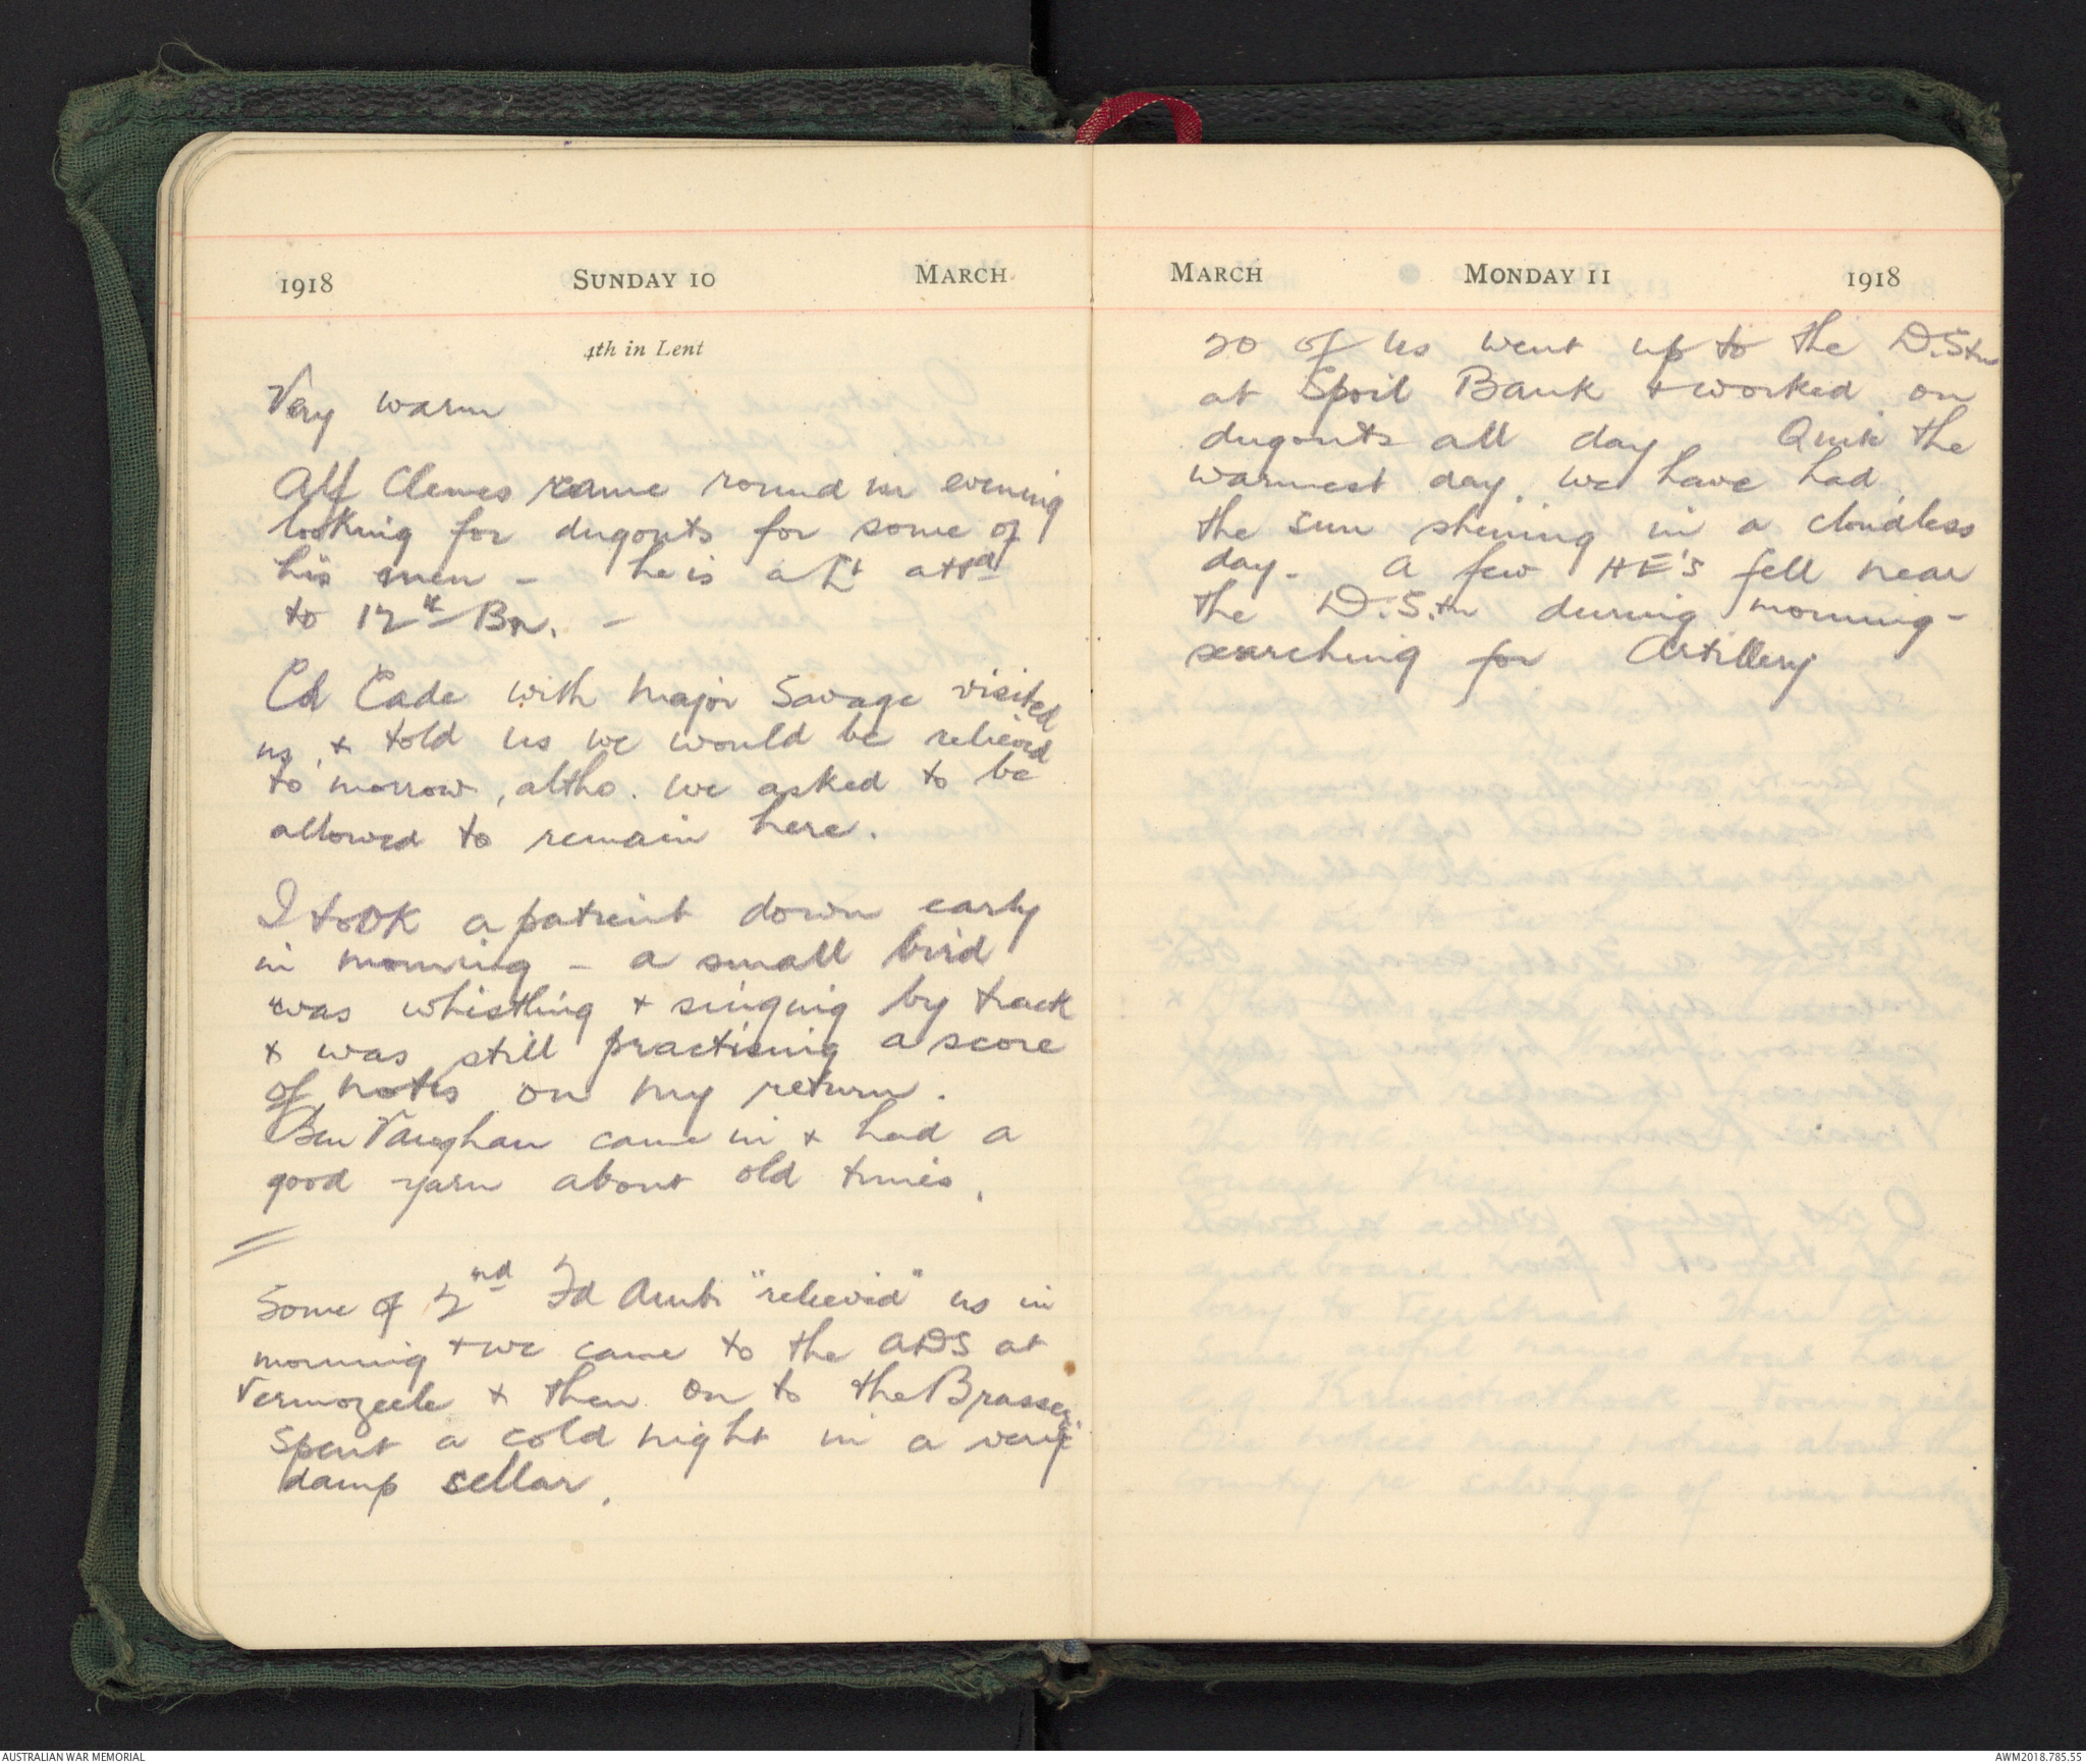 1918 SUNDAY 10 MARCH
4th in Lent
Very warm
Alf Clemes came round in evening
looking for dugouts for some of
his men - he is a Lt attd
to 12th Bn. -
Col Eade with Major Savage visited
us, & told us we would be relieved
to morrow, altho. we asked to be
allowed to remain here.
I took a patient down early
in morning - a small bird
was whistling & singing by track
& was still practising a score
of notes on my return.
Ben Vaughan came in & had a
good yarn about old times.
Some of 2nd Fd Amb "relievid" us in
morning & we came to the ADS at
Vermozeele & then on to the Brasserie
Spent a cold night in a very
damp sellar.
MARCH MONDAY 11 1918
20 of us went up to the D.Stn
at Spoil Bank & worked on
dugouts all day. Quite the
warmest day. we have had,
the sun shining in a cloudless
day. A few HE's fell near
the D.Stn during morning -
searching for Artillery
AUSTRALIAN WAR MEMORIAL
AWM2018.785.55